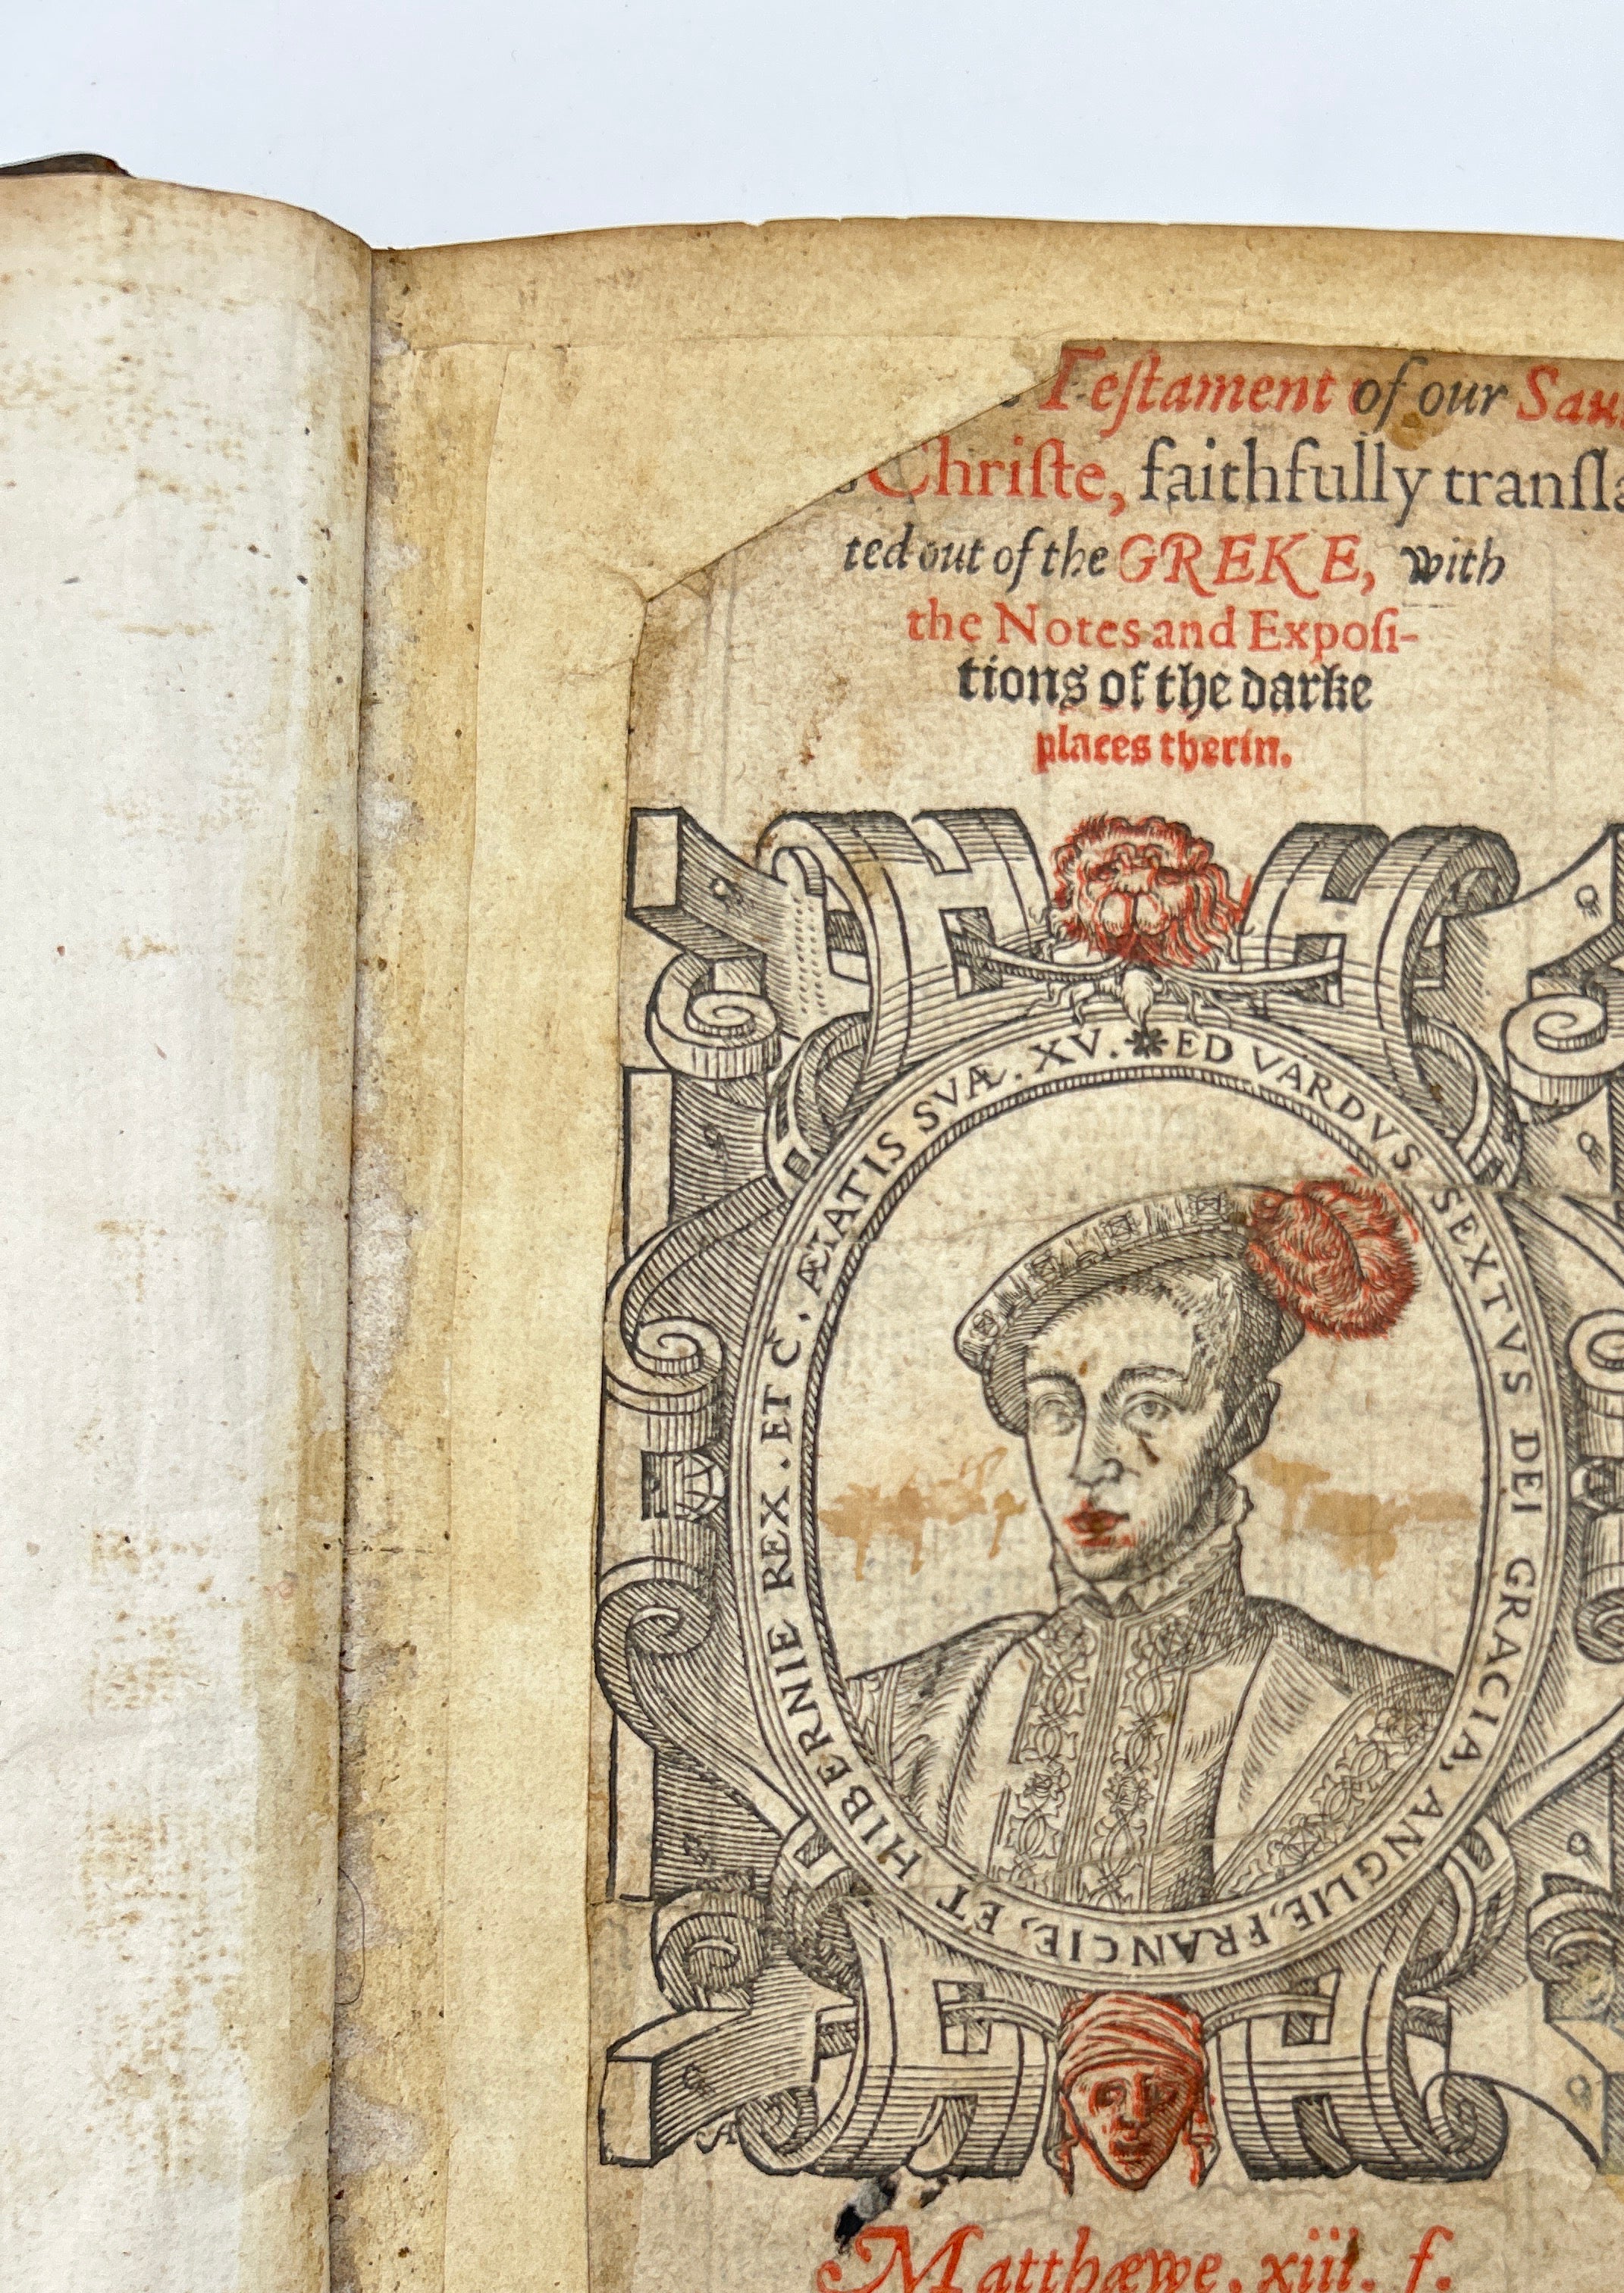 Teſtament of our Sau
Chriſte, faithfully tranſla
ted out of the GREKE, with
the Notes and Expoſi-
tions of the darke
places therin.
EDVARDVS SEXTVS DEI GRACIA, ANGLIE, FRANCIE, ET HIBERNIE REX. ET C. ÆTATIS SVÆ. XV. *
Matthæwe. xiii. f.